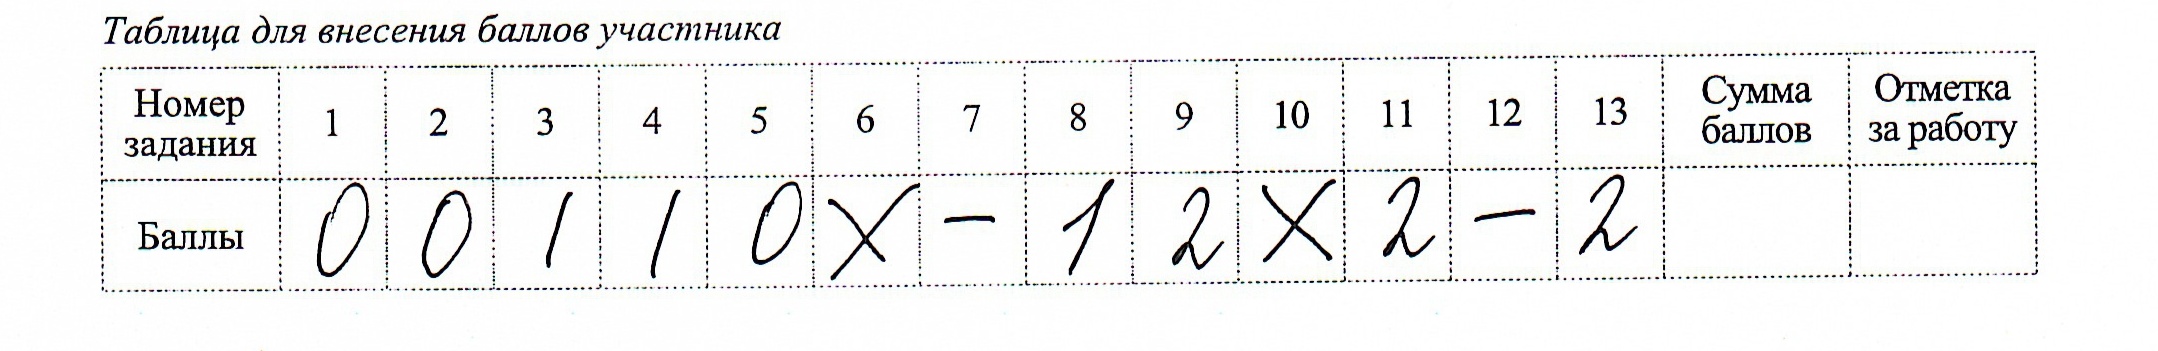 Таблица для внесения баллов участника
Номер задания 1 2 3 4 5 6 7 8 9 10 11 12 13 Сумма баллов Отметка за работу
Баллы 0 0 1 1 0 X – 1 2 X 2 – 2